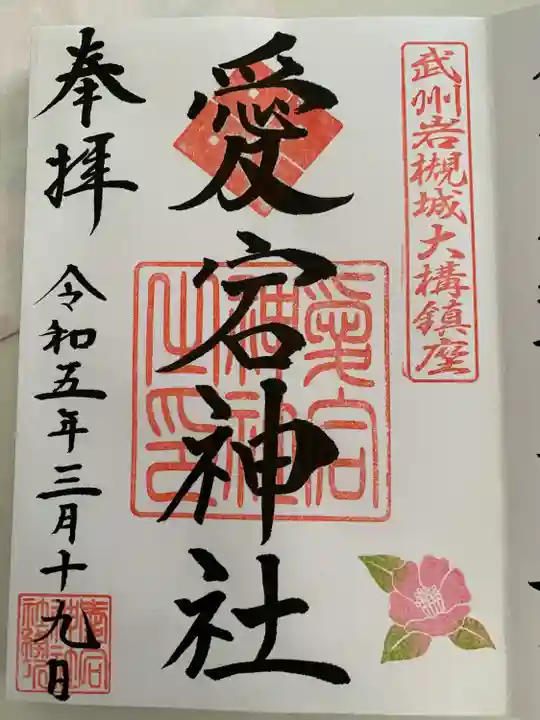 武州岩槻城大構鎮座
愛宕神社
愛宕
神社
之印
奉拝
令和五年三月十九日